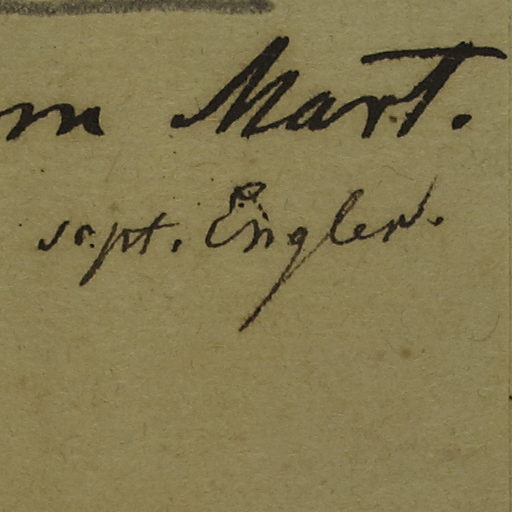 m Mart.
scpt. Engler.